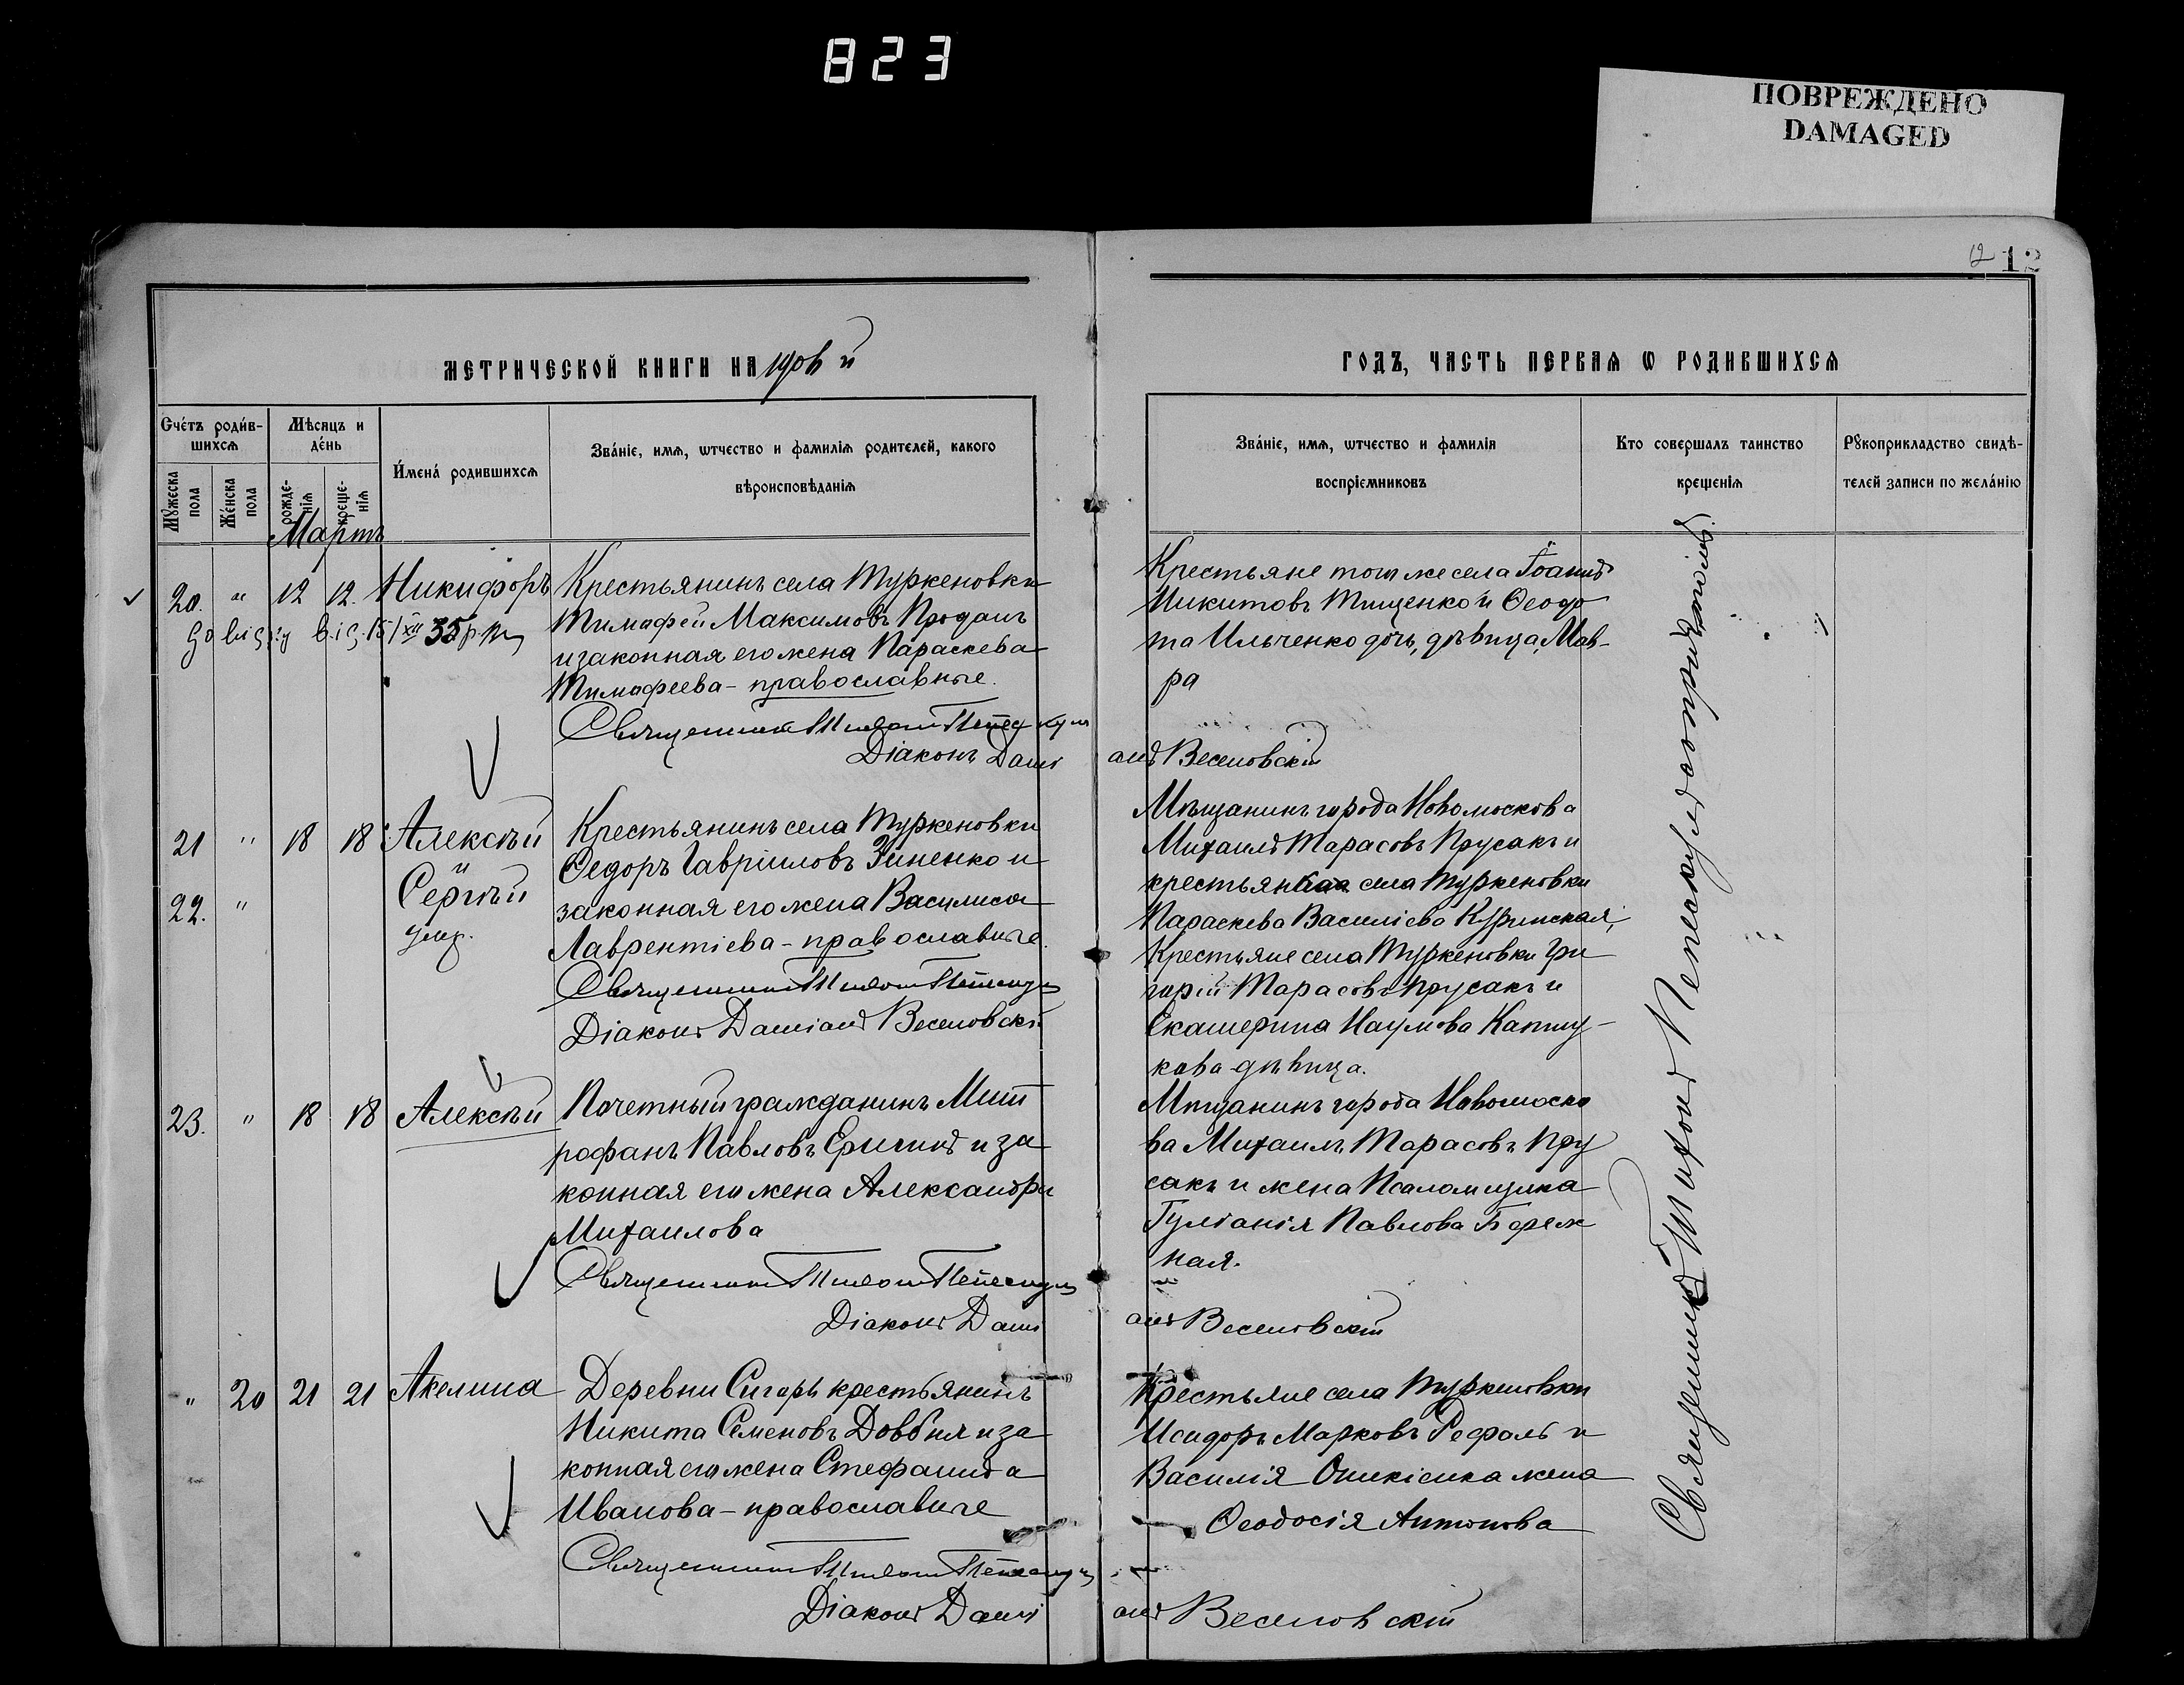 823
ПОВРЕЖДЕНО
DAMAGED
12 12
МЕТРИЧЕСКОЙ КНИГИ НА 190 й
ГОДЪ, ЧАСТЬ ПЕРВАЯ Ѡ РОДИВШИХСЯ
Счетъ родив-
шихся
Мѣсяцъ и
день
Имена родившихся
Званіе, имя, ѿтчество и фамилія родителей, какого
вѣроисповѣданія
Мꙋжеска
пола
Женска
пола
рожде-
нія
креще-
нія
Званіе, имя, ѿтчество и фамилія
воспріемниковъ
Кто совершалъ таинство
крещенія
Рꙋкоприкладство свидѣ-
телей записи по желанію
Мартъ
20. " 12 12. Никифоръ
Крестьянинъ села Туркеновки
Тимафей Максимовъ Проданъ
и законная его жена Параскева
Тимафеева - православные.
Священникъ Тихонъ
Діаконъ Даміанъ Веселовскій
Крестьяне того же села Іоаннъ
Никитовъ Тищенко и Ѳеодо
та Ильченко дочь, дѣвица, Мав-
ра
21 " 18 18 Алексѣй
и
22. " Сергѣй
умер.
Крестьянинъ села Туркеновки
Ѳедоръ Гавріиловъ Зиненко и
законная его жена Василиса
Лаврентіева - православные.
Священникъ Тихонъ
Діаконъ Даміанъ Веселовскій
Мѣщанинъ города Новомосковска
Михаилъ Тарасовъ Прусакъ и
села Туркеновки
Параскева Василіева
Крестьяне села Туркеновки Гри
горій Тарасовъ Прусакъ и
Екатерина Наумова
кова - дѣвица.
23. " 18 18 Алексѣй
Почетный гражданинъ Мит
рофанъ Павловъ и за
конная его жена Александра
Михаилова
Священникъ Тихонъ
Діаконъ Даміанъ Веселовскій
Мѣщанинъ города Новомоско
ва Михаилъ Тарасовъ Пру
сакъ и жена Псаломщика
Іуліанія Павлова Береж
ная.
" 20 21 21 Акелина
Деревни Сигоръ крестьянинъ
Никита Семеновъ Довбня и за
конная его жена Стефанида
Иванова - православные
Священникъ Тихонъ
Діаконъ Даміанъ Веселовскій
Крестьяне села Туркеновки
Исидоръ Марковъ и
Василія жена
Ѳеодосія Антонова
Священникъ Тихонъ